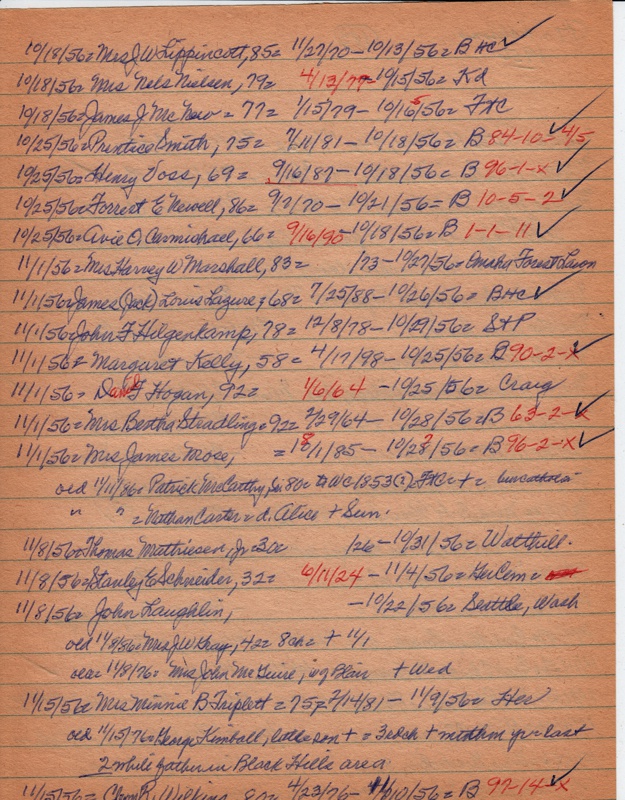 10/18/56= Mrs J W Lippincott, 85= 11/27/70 – 10/13/56= B HC ✓
10/18/56= Mrs Nels Nielsen, 79= 4/13/77– 10/15/56= Kd
10/18/56= James J McNew = 77= 1/15/79 – 10/16/56= FHC
10/25/56= Prentice Smith, 75= 7/11/81 – 10/18/56= B 84-10-4/5 ✓
10/25/56= Henry Voss, 69= 9/16/87 – 10/18/56= B 96-1-x ✓
10/25/56= Forrest E Newell, 86= 9/7/70 – 10/21/56= B 10-5-2 ✓
10/25/56= Avie O. Carmichael, 66= 9/16/90 – 10/18/56= B 1-1-11 ✓
11/1/56= Mrs Harvey W Marshall, 83= /73 – 10/27/56= Omaha Forest Lawn
11/1/56= James (Jack) Louis Lazure, 68= 7/25/88 – 10/26/56= B HC ✓
11/1/56= John F Hilgenkamp, 78= 12/8/78 – 10/29/56= StP
11/1/56= Margaret Kelly, 58= 4/17/98 – 10/25/56= B 90-2-x ✓
11/1/56= F Hogan, 92= 1/6/64 – 10/25/56= Craig
11/1/56= Mrs Bertha Stradling= 92= 2/29/64 – 10/28/56= B 63-2-x ✓
11/1/56= Mrs James Mose, = /1/85 – 10/28/56= B 96-2-x ✓
old 11/11/86= Patrick McCarthy, 80= WC 1853(?) FHC
" " = Nathan Carter = d. Alice + Sun.
11/8/56= Thomas Matthiesen, Jr 30c /26 – 10/31/56= Walthill.
11/8/56= Stanley E Schneider, 32= 6/11/24 – 11/4/56= HerCem =
11/8/56= John Laughlin, – 10/22/56= Seattle, Wash
old 11/8/86= Mrs J W 42= 8ch= + 11/1
11/8/76= Mrs John McGuire, Blair + Wed
11/15/56= Mrs Minnie B Triplett = 75= 2/14/81 – 11/9/56= Her
old 11/15/76= George Kimball, + = + yr = last
2 while father in Black Hills area
11/15/56= Wilkins 80= 4/23/76 – 11/10/56= B 97-14-x ✓